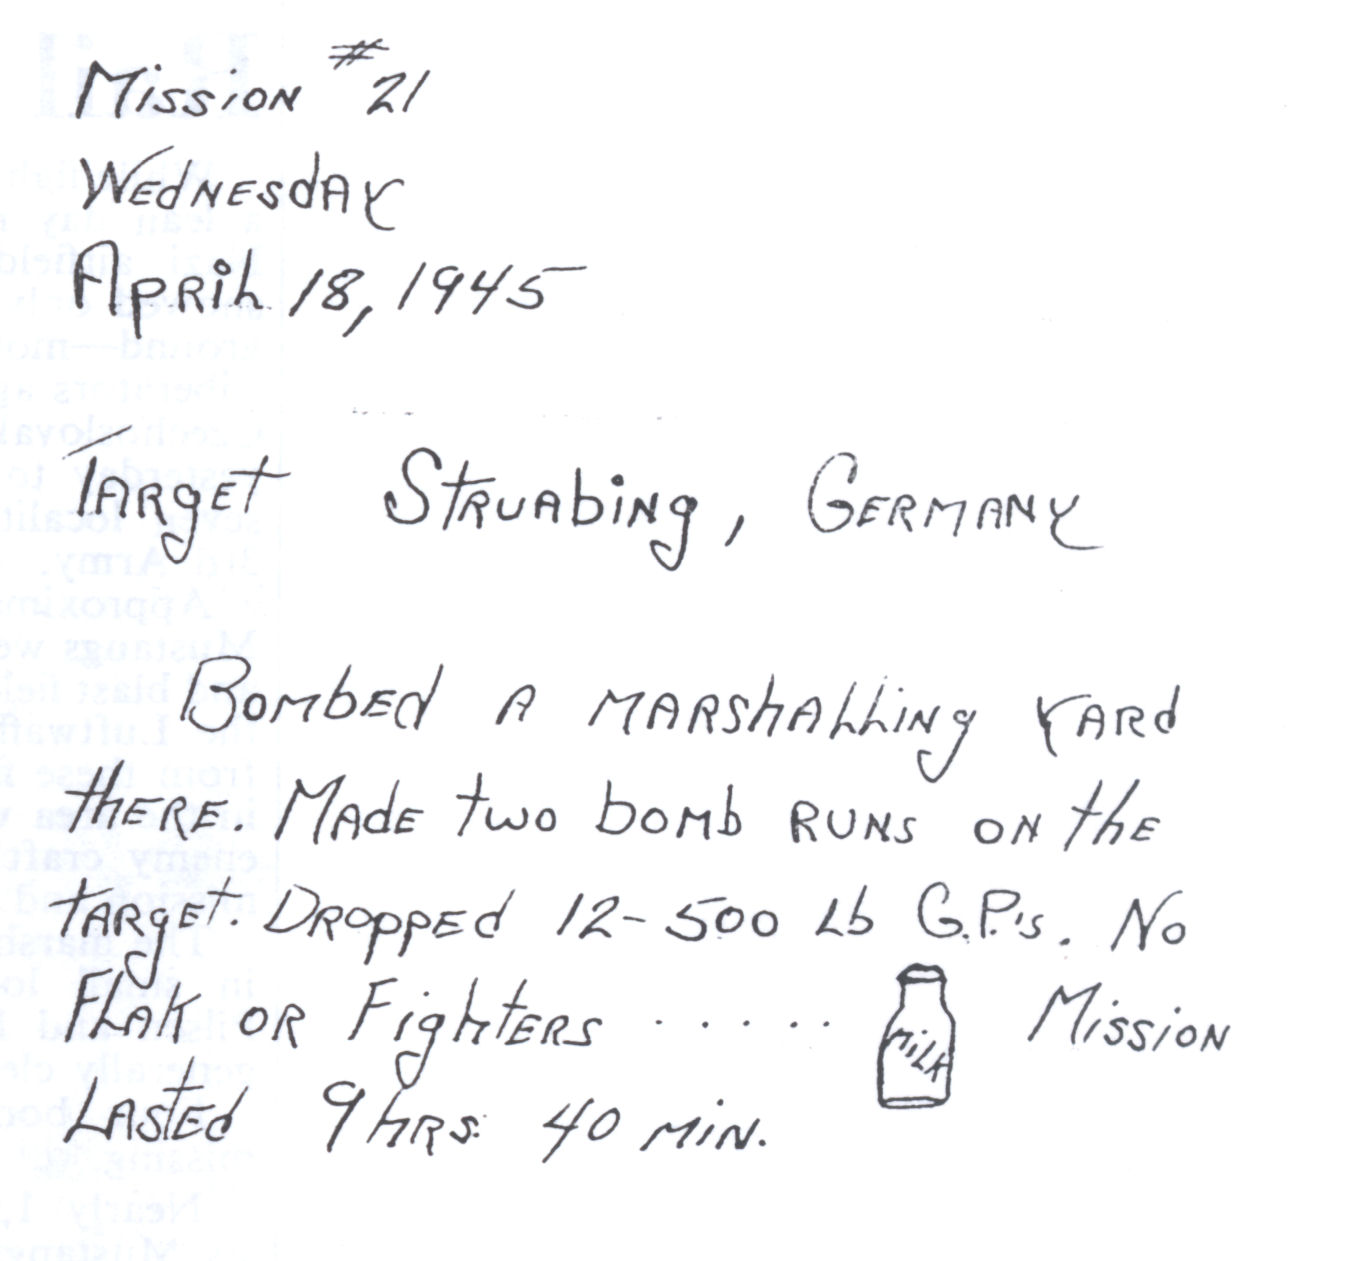 Mission #21
Wednesday
April 18, 1945
Target Struabing, Germany
Bombed a marshalling yard
there. Made two bomb runs on the
target. Dropped 12-500 lb G.P.'s. No
Flak or Fighters ..... MILK Mission
Lasted 9 hrs. 40 min.